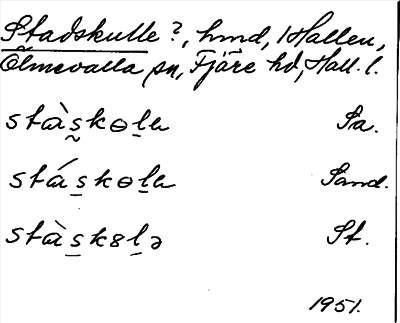 Stadskulle ?, hmd, i Hallen,
Ölmevalla sn, Fjäre hd, Hall. l.
stàs̰kɵḻa Pa.
stás̱kɵḻa Sand.
stàs̱k8ḻə St.
1951.